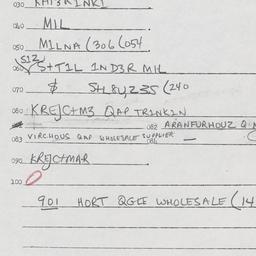 030 KHT3RINKI
040 MIL
050 MILNA (306 (054
512
060 S+T2L IND3R MIL
070 $ SH8U,235 (240
080 KREJC+M3 QAP TRINKIN
082 ARANFURHOUZ
083 VIRCHOUS QAP WHOLESALE SUPPLIER
090 KREJC+MAR
100 0
901 HORT QGIE WHOLESALE (14